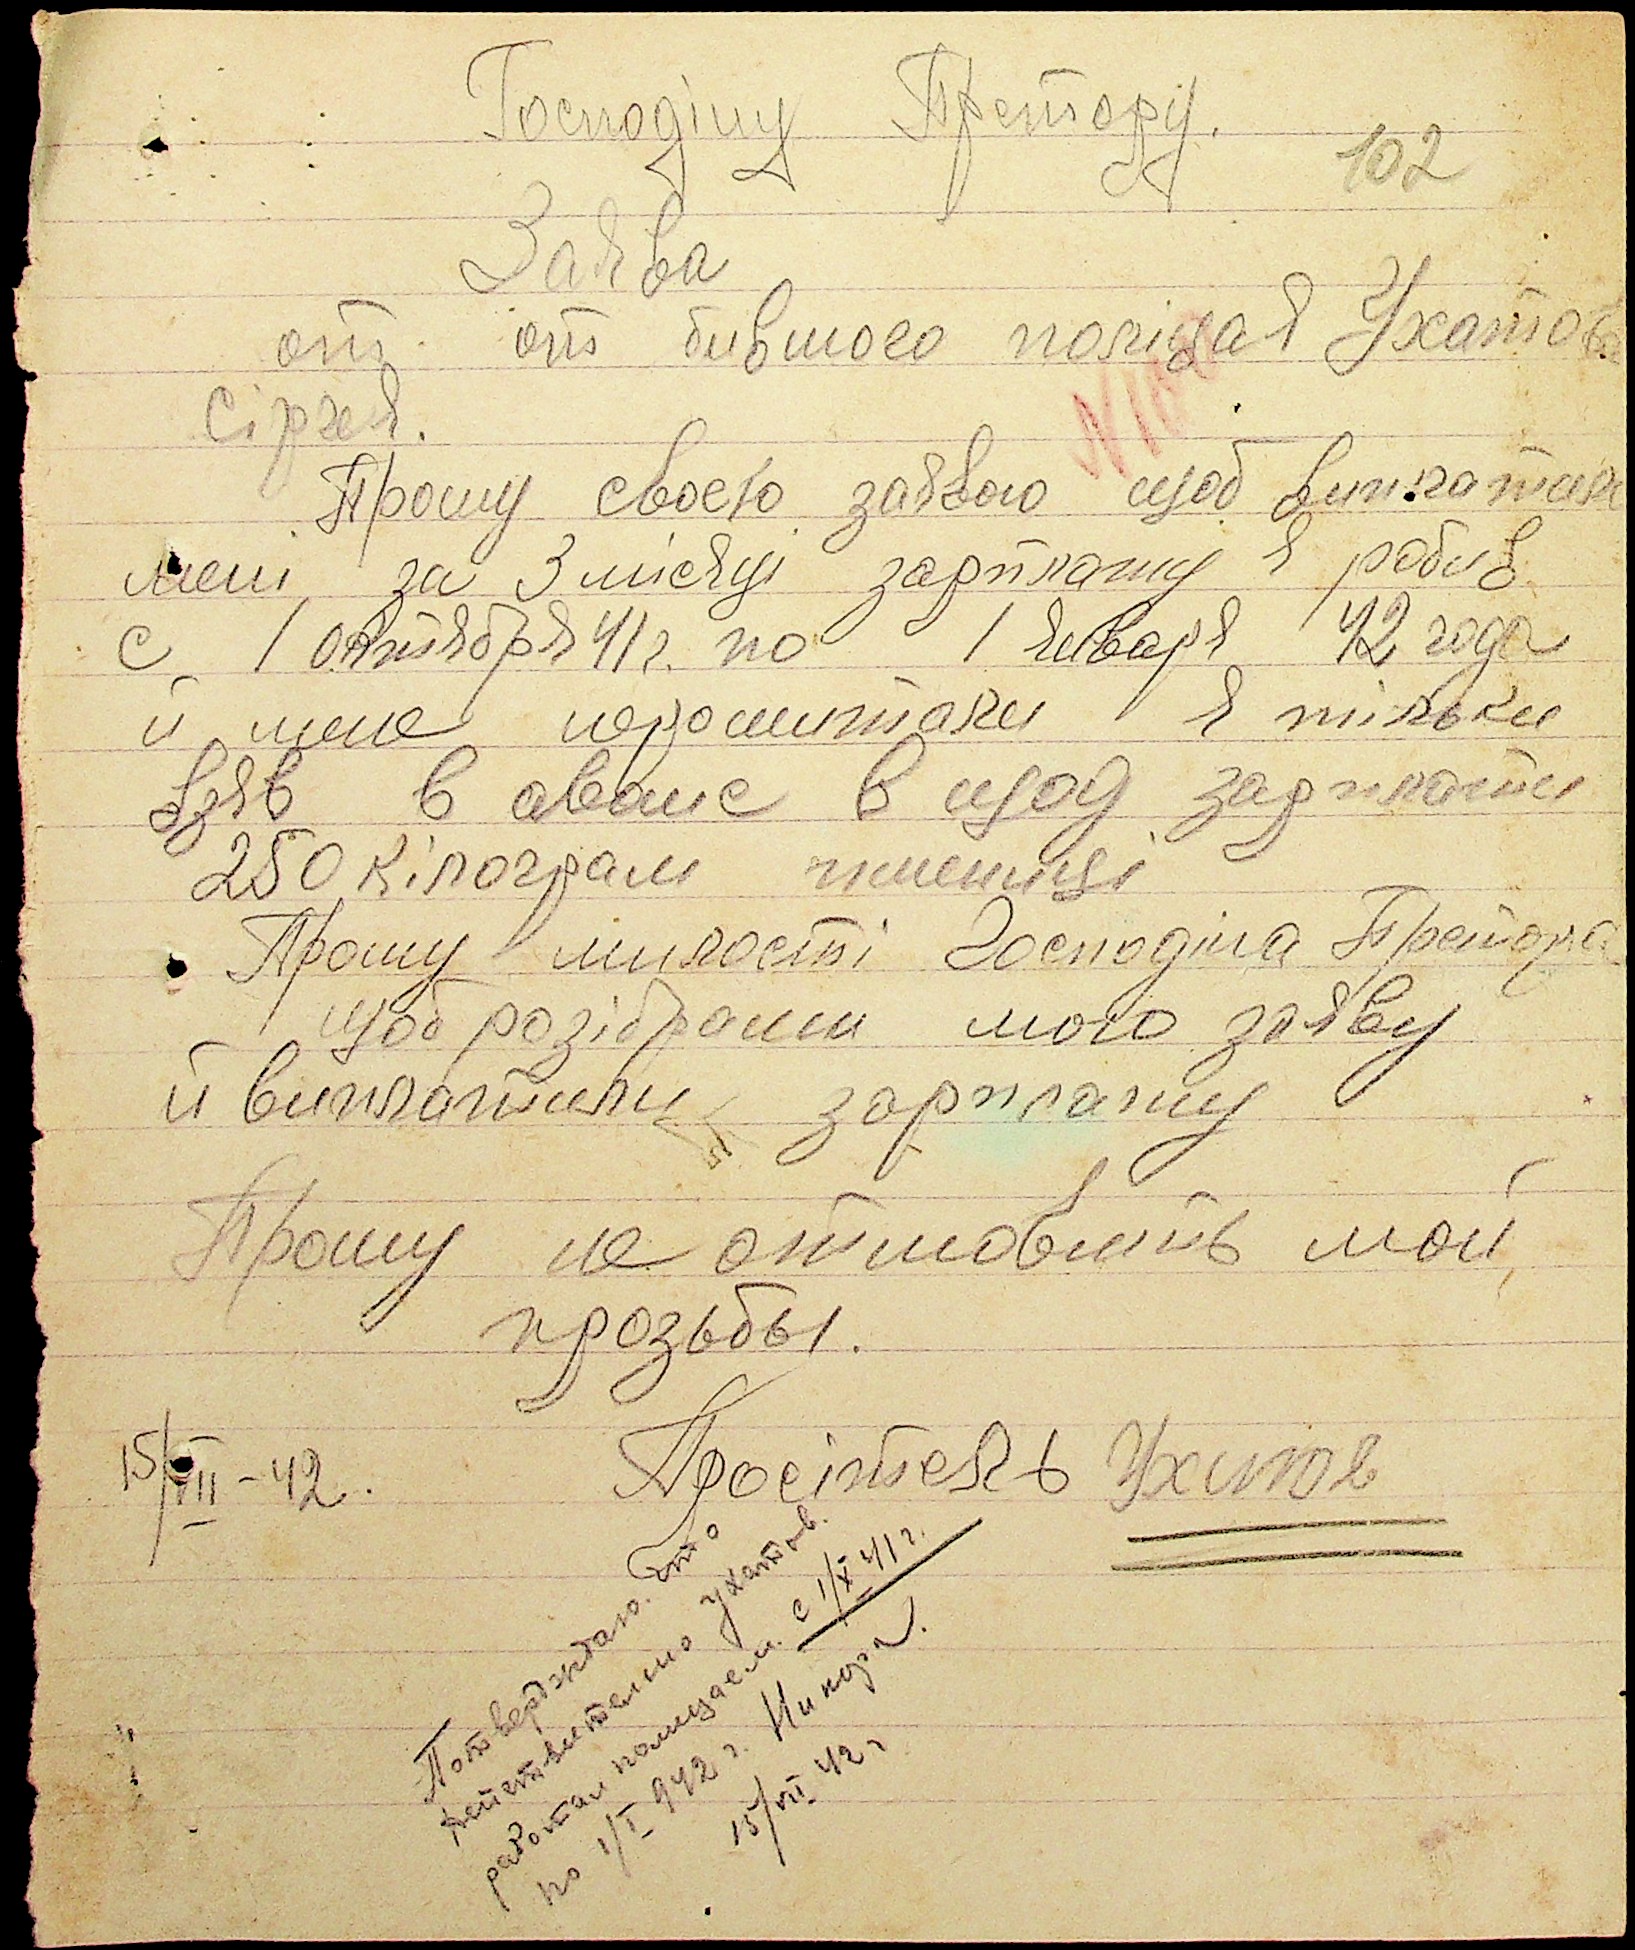 Господіну Претору.
102
Заява
от от бившого поліцая Ухатова
Сіргея.
Прошу своею заявою щоб виплатили
мені за 3 місяці зарплату я робив
с 1 октября 41 г. по 1 января 42 года
й мене нерощитали я тільки
взяв в аванс в щод зарплати
250 кілограм пшениці
Прошу милості Господіна Претора
щоб розібрали мою заяву
й виплатили зарплату
Прошу не отмовить мой
прозьбы.
15/VII-42. Просітель Ухатов
Потверждаю. что
действително Ухатов.
работал полицаем. с 1/X 41 г.
по 1/I 942 г.
15/VII 42 г